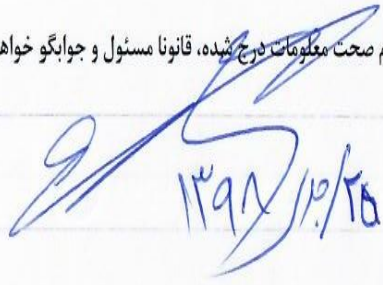 م صحت معلومات درج شده، قانونا مسئول و جوابگو خواه
۱۳۹۸/۱۲/۲۵